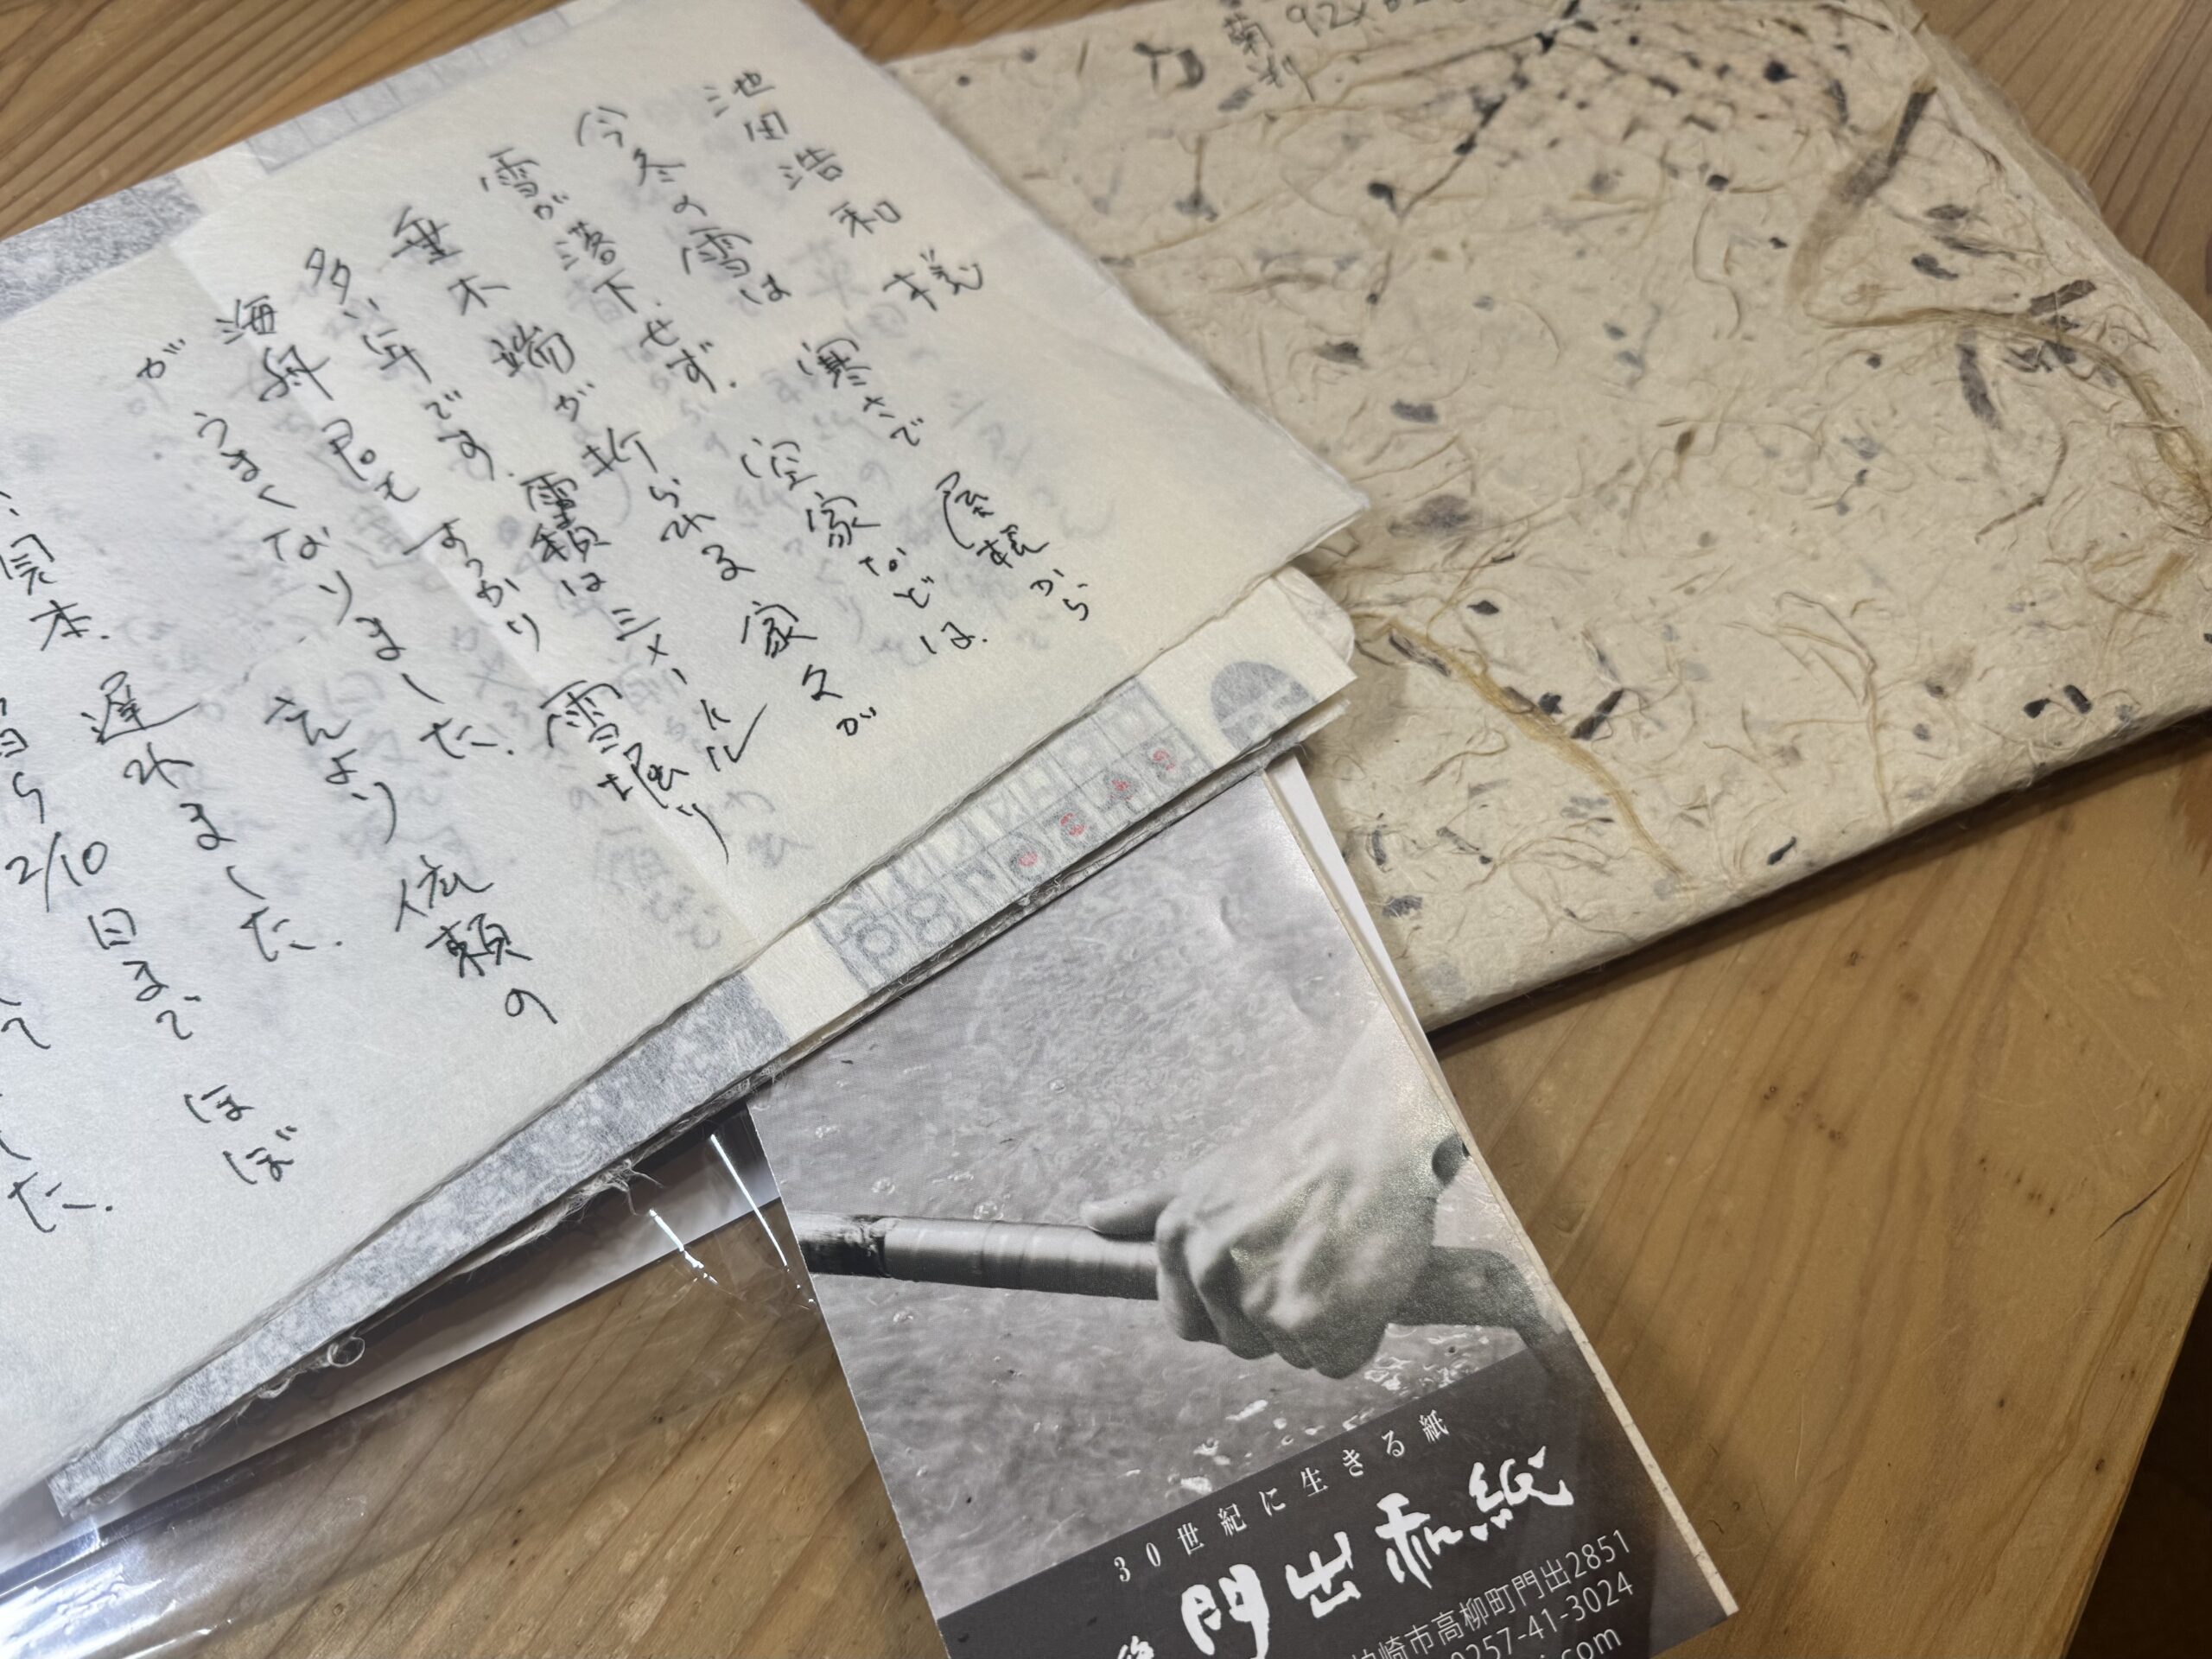 池田浩和 様
今冬の雪は 寒さで 屋根から
雪が落下せず. 空家などは.
垂木端が折られる家々が
多い年です. 積雪は三メートル
海舟君もすっかり 雪堀り
がうまくなりました.
見本. 遅れました. 依頼の
2/10日まで ほぼ
した.
菊判 92×
30世紀に生きる紙
門出和紙
柏崎市高柳町門出2851
0257-41-3024
.com